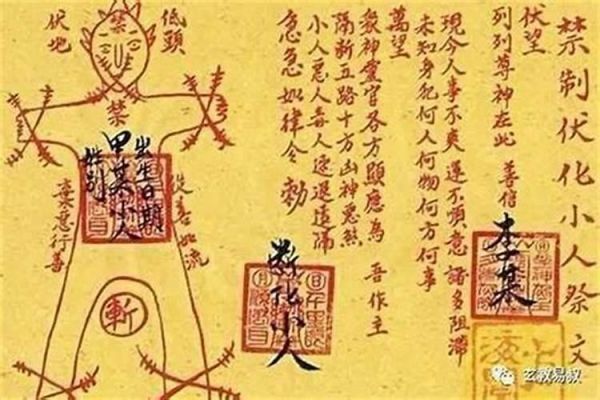 禁制伏化小人祭文
伏望
列列尊神在此 善信 李某
現今人事不爽運不順意諸多阻滯
未知身犯何人何物何方何事
萬望
眾神靈官各方顯應為 吾作主
隔斷五路十方凶神惡煞
小人惡人毒人退遠
急急如律令勅
化小人
低頭
伏地
禁
禁
出生日期
甲某小人
姓别
從善如流
棄惡行善
斬
玄教易叔